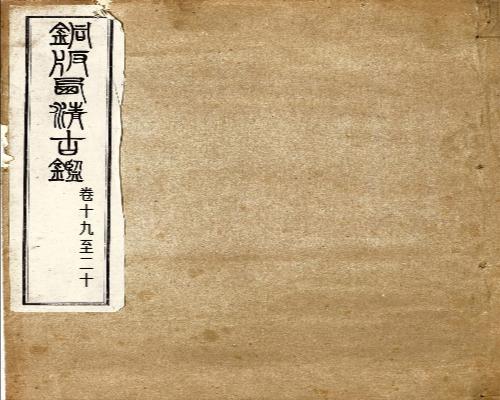 銅版西清古鑑
卷十九至二十